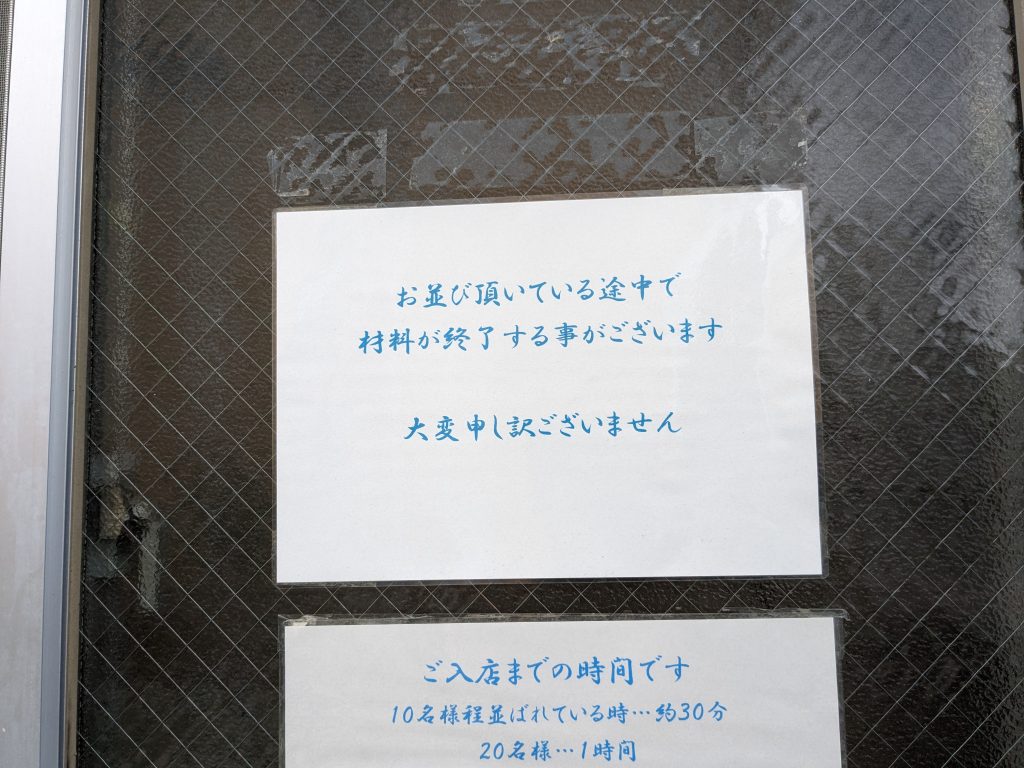 お並び頂いている途中で
材料が終了する事がございます
大変申し訳ございません
ご入店までの時間です
10名様程並ばれている時…約30分
20名様…1時間